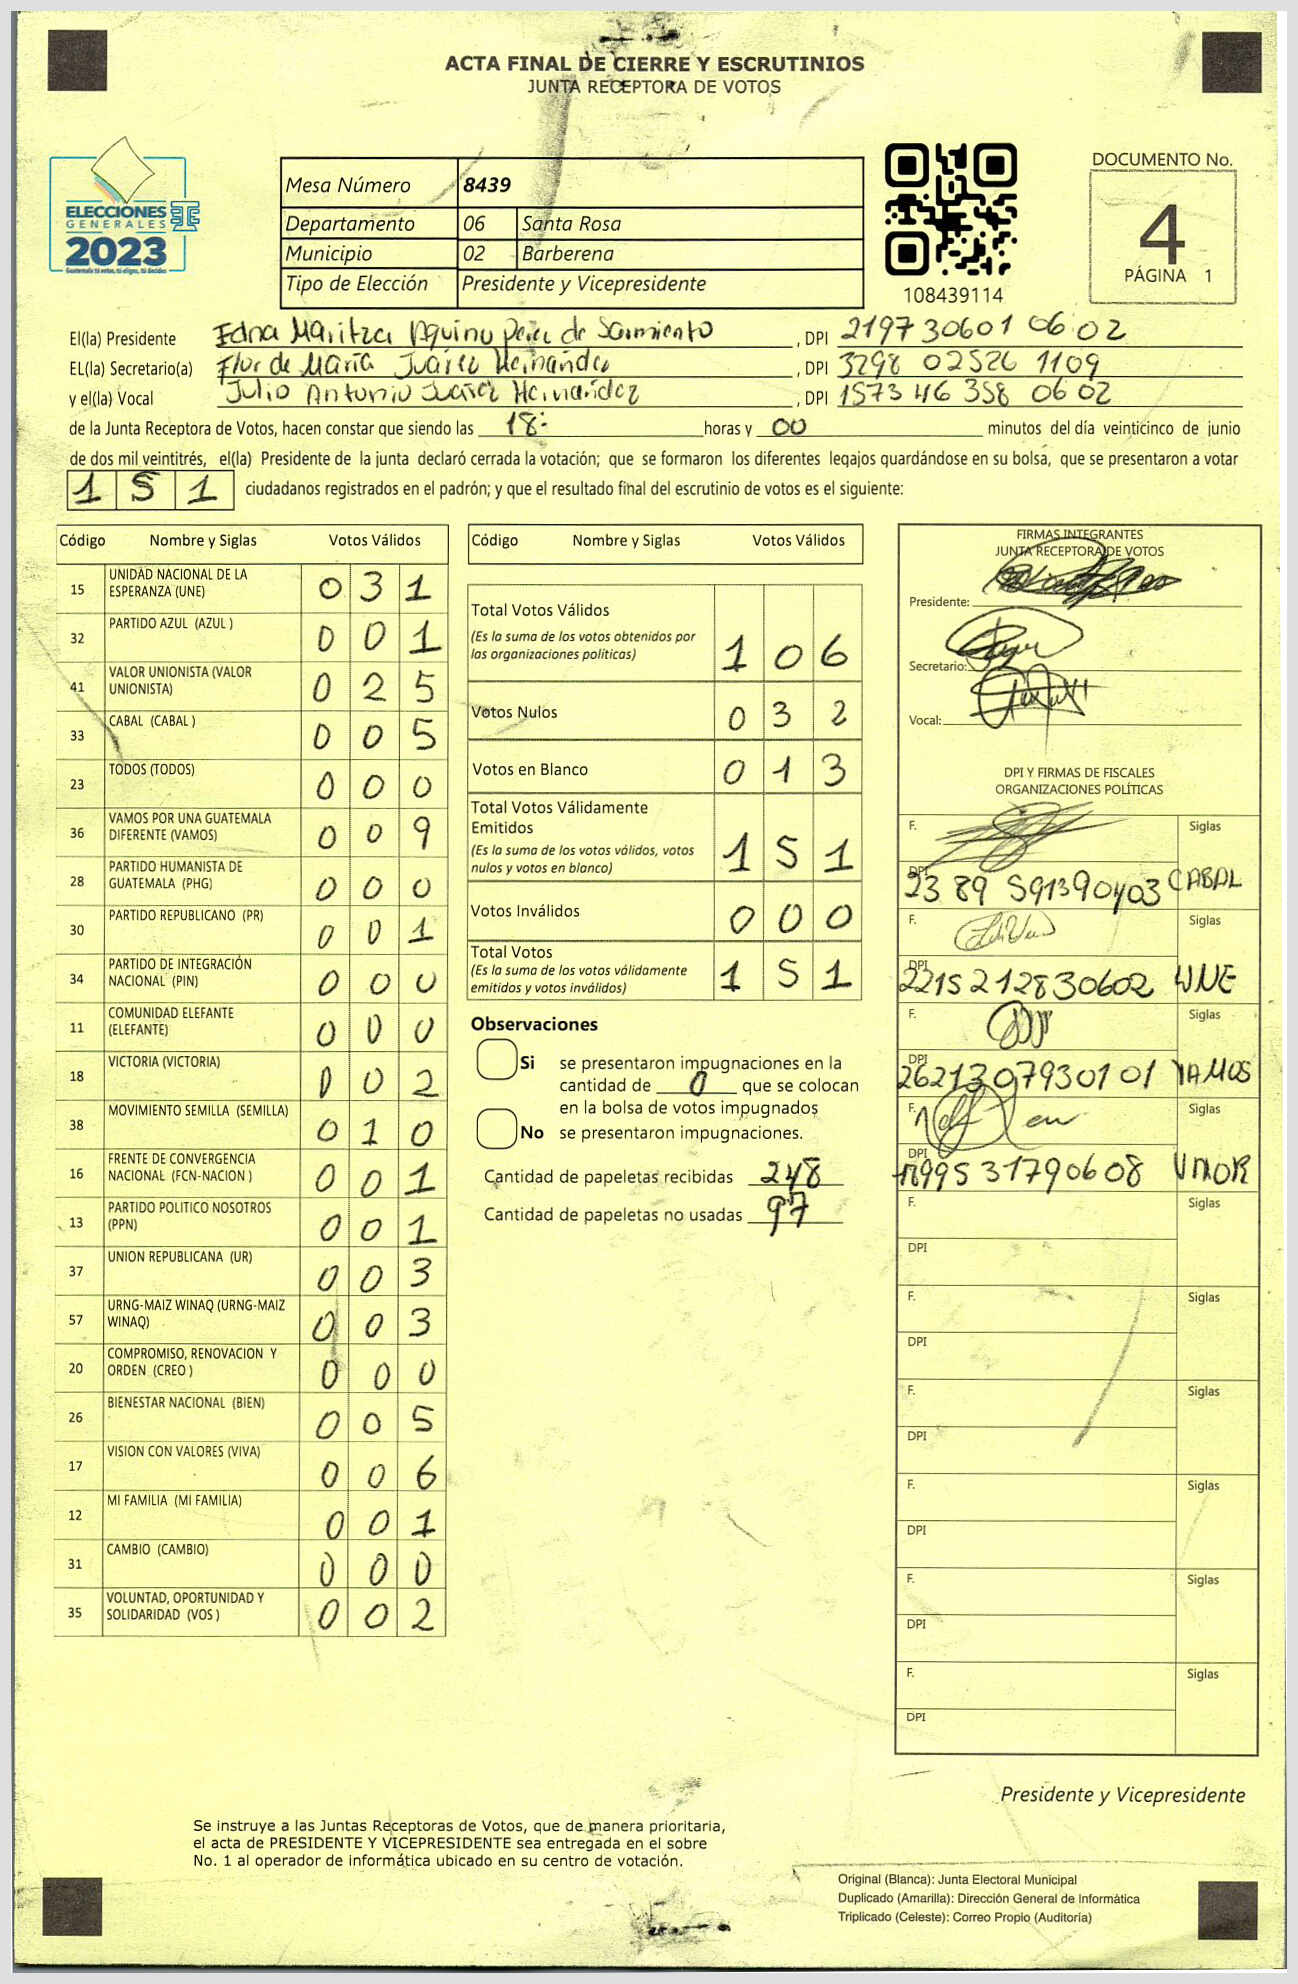 ACTA FINAL DE CIERRE Y ESCRUTINIOS
JUNTA RECEPTORA DE VOTOS
DOCUMENTO No.
4
PÁGINA 1
ELECCIONES
GENERALES
2023
Guatemala tú votas, tú eliges, tú decides
Mesa Número 8439
Departamento 06 Santa Rosa
Municipio 02 Barberena
Tipo de Elección Presidente y Vicepresidente
108439114
El(la) Presidente Edna Maritza Aquino Perez de Sarmiento , DPI 2197 30601 06 02
EL(la) Secretario(a) Flor de María Juárez Hernández , DPI 3298 02526 1109
y el(la) Vocal Julio Antonio Juárez Hernández , DPI 1573 46 358 0602
de la Junta Receptora de Votos, hacen constar que siendo las 18: horas y 00 minutos del día veinticinco de junio
de dos mil veintitrés, el(la) Presidente de la junta declaró cerrada la votación; que se formaron los diferentes legajos guardándose en su bolsa, que se presentaron a votar
1 5 1 ciudadanos registrados en el padrón; y que el resultado final del escrutinio de votos es el siguiente:
Código Nombre y Siglas Votos Válidos
15 UNIDAD NACIONAL DE LA ESPERANZA (UNE) 0 3 1
32 PARTIDO AZUL (AZUL ) 0 0 1
41 VALOR UNIONISTA (VALOR UNIONISTA) 0 2 5
33 CABAL (CABAL ) 0 0 5
23 TODOS (TODOS) 0 0 0
36 VAMOS POR UNA GUATEMALA DIFERENTE (VAMOS) 0 0 9
28 PARTIDO HUMANISTA DE GUATEMALA (PHG) 0 0 0
30 PARTIDO REPUBLICANO (PR) 0 0 1
34 PARTIDO DE INTEGRACIÓN NACIONAL (PIN) 0 0 0
11 COMUNIDAD ELEFANTE (ELEFANTE) 0 0 0
18 VICTORIA (VICTORIA) 0 0 2
38 MOVIMIENTO SEMILLA (SEMILLA) 0 1 0
16 FRENTE DE CONVERGENCIA NACIONAL (FCN-NACION ) 0 0 1
13 PARTIDO POLITICO NOSOTROS (PPN) 0 0 1
37 UNION REPUBLICANA (UR) 0 0 3
57 URNG-MAIZ WINAQ (URNG-MAIZ WINAQ) 0 0 3
20 COMPROMISO, RENOVACION Y ORDEN (CREO ) 0 0 0
26 BIENESTAR NACIONAL (BIEN) 0 0 5
17 VISION CON VALORES (VIVA) 0 0 6
12 MI FAMILIA (MI FAMILIA) 0 0 1
31 CAMBIO (CAMBIO) 0 0 0
35 VOLUNTAD, OPORTUNIDAD Y SOLIDARIDAD (VOS ) 0 0 2
Código Nombre y Siglas Votos Válidos
Total Votos Válidos
(Es la suma de los votos obtenidos por
las organizaciones politicas) 1 0 6
Votos Nulos 0 3 2
Votos en Blanco 0 1 3
Total Votos Válidamente
Emitidos
(Es la suma de los votos válidos, votos
nulos y votos en blanco) 1 5 1
Votos Inválidos 0 0 0
Total Votos
(Es la suma de los votos válidamente
emitidos y votos inválidos) 1 5 1
Observaciones
Si se presentaron impugnaciones en la
cantidad de 0 que se colocan
en la bolsa de votos impugnados
No se presentaron impugnaciones.
Cantidad de papeletas recibidas 248
Cantidad de papeletas no usadas 97
FIRMAS INTEGRANTES
JUNTA RECEPTORA DE VOTOS
Presidente:
Secretario:
Vocal:
DPI Y FIRMAS DE FISCALES
ORGANIZACIONES POLÍTICAS
F. Siglas
DPI 23 89 59139 0403 CABAL
F. Siglas
DPI 2215 212830602 UNE
F. Siglas
DPI 262130793 01 01 VAMOS
F. Siglas
DPI 1899531790608 VALOR
F. Siglas
DPI
F. Siglas
DPI
F. Siglas
DPI
F. Siglas
DPI
F. Siglas
DPI
F. Siglas
DPI
Presidente y Vicepresidente
Se instruye a las Juntas Receptoras de Votos, que de manera prioritaria,
el acta de PRESIDENTE Y VICEPRESIDENTE sea entregada en el sobre
No. 1 al operador de informática ubicado en su centro de votación.
Original (Blanca): Junta Electoral Municipal
Duplicado (Amarilla): Dirección General de Informática
Triplicado (Celeste): Correo Propio (Auditoría)